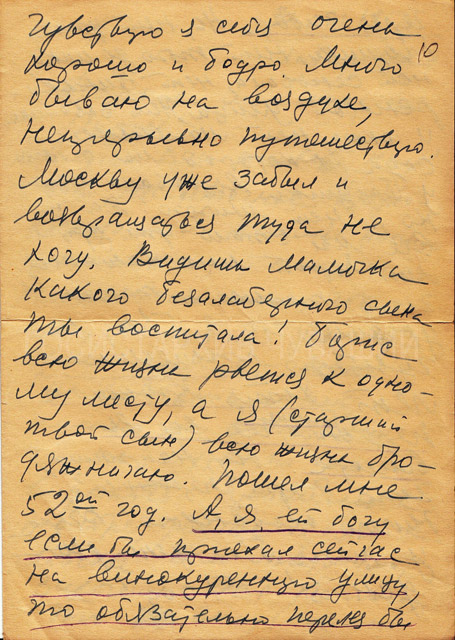 Чувствую я себя очень
хорошо и бодро. Много 10
бываю на воздухе,
непрерывно путешествую.
Москву уже забыл и
возвращаться туда не
хочу. Видишь Мамочка
какого безалаберного сына
ты воспитала! Борис
всю жизнь рвется к одно-
му месту, а я (старший
твой сын) всю жизнь бро-
дяжничаю. Пошел мне
52ой год. А, я, ей богу
если бы приехал сейчас
на винокуренную улицу,
то обязательно перелез бы